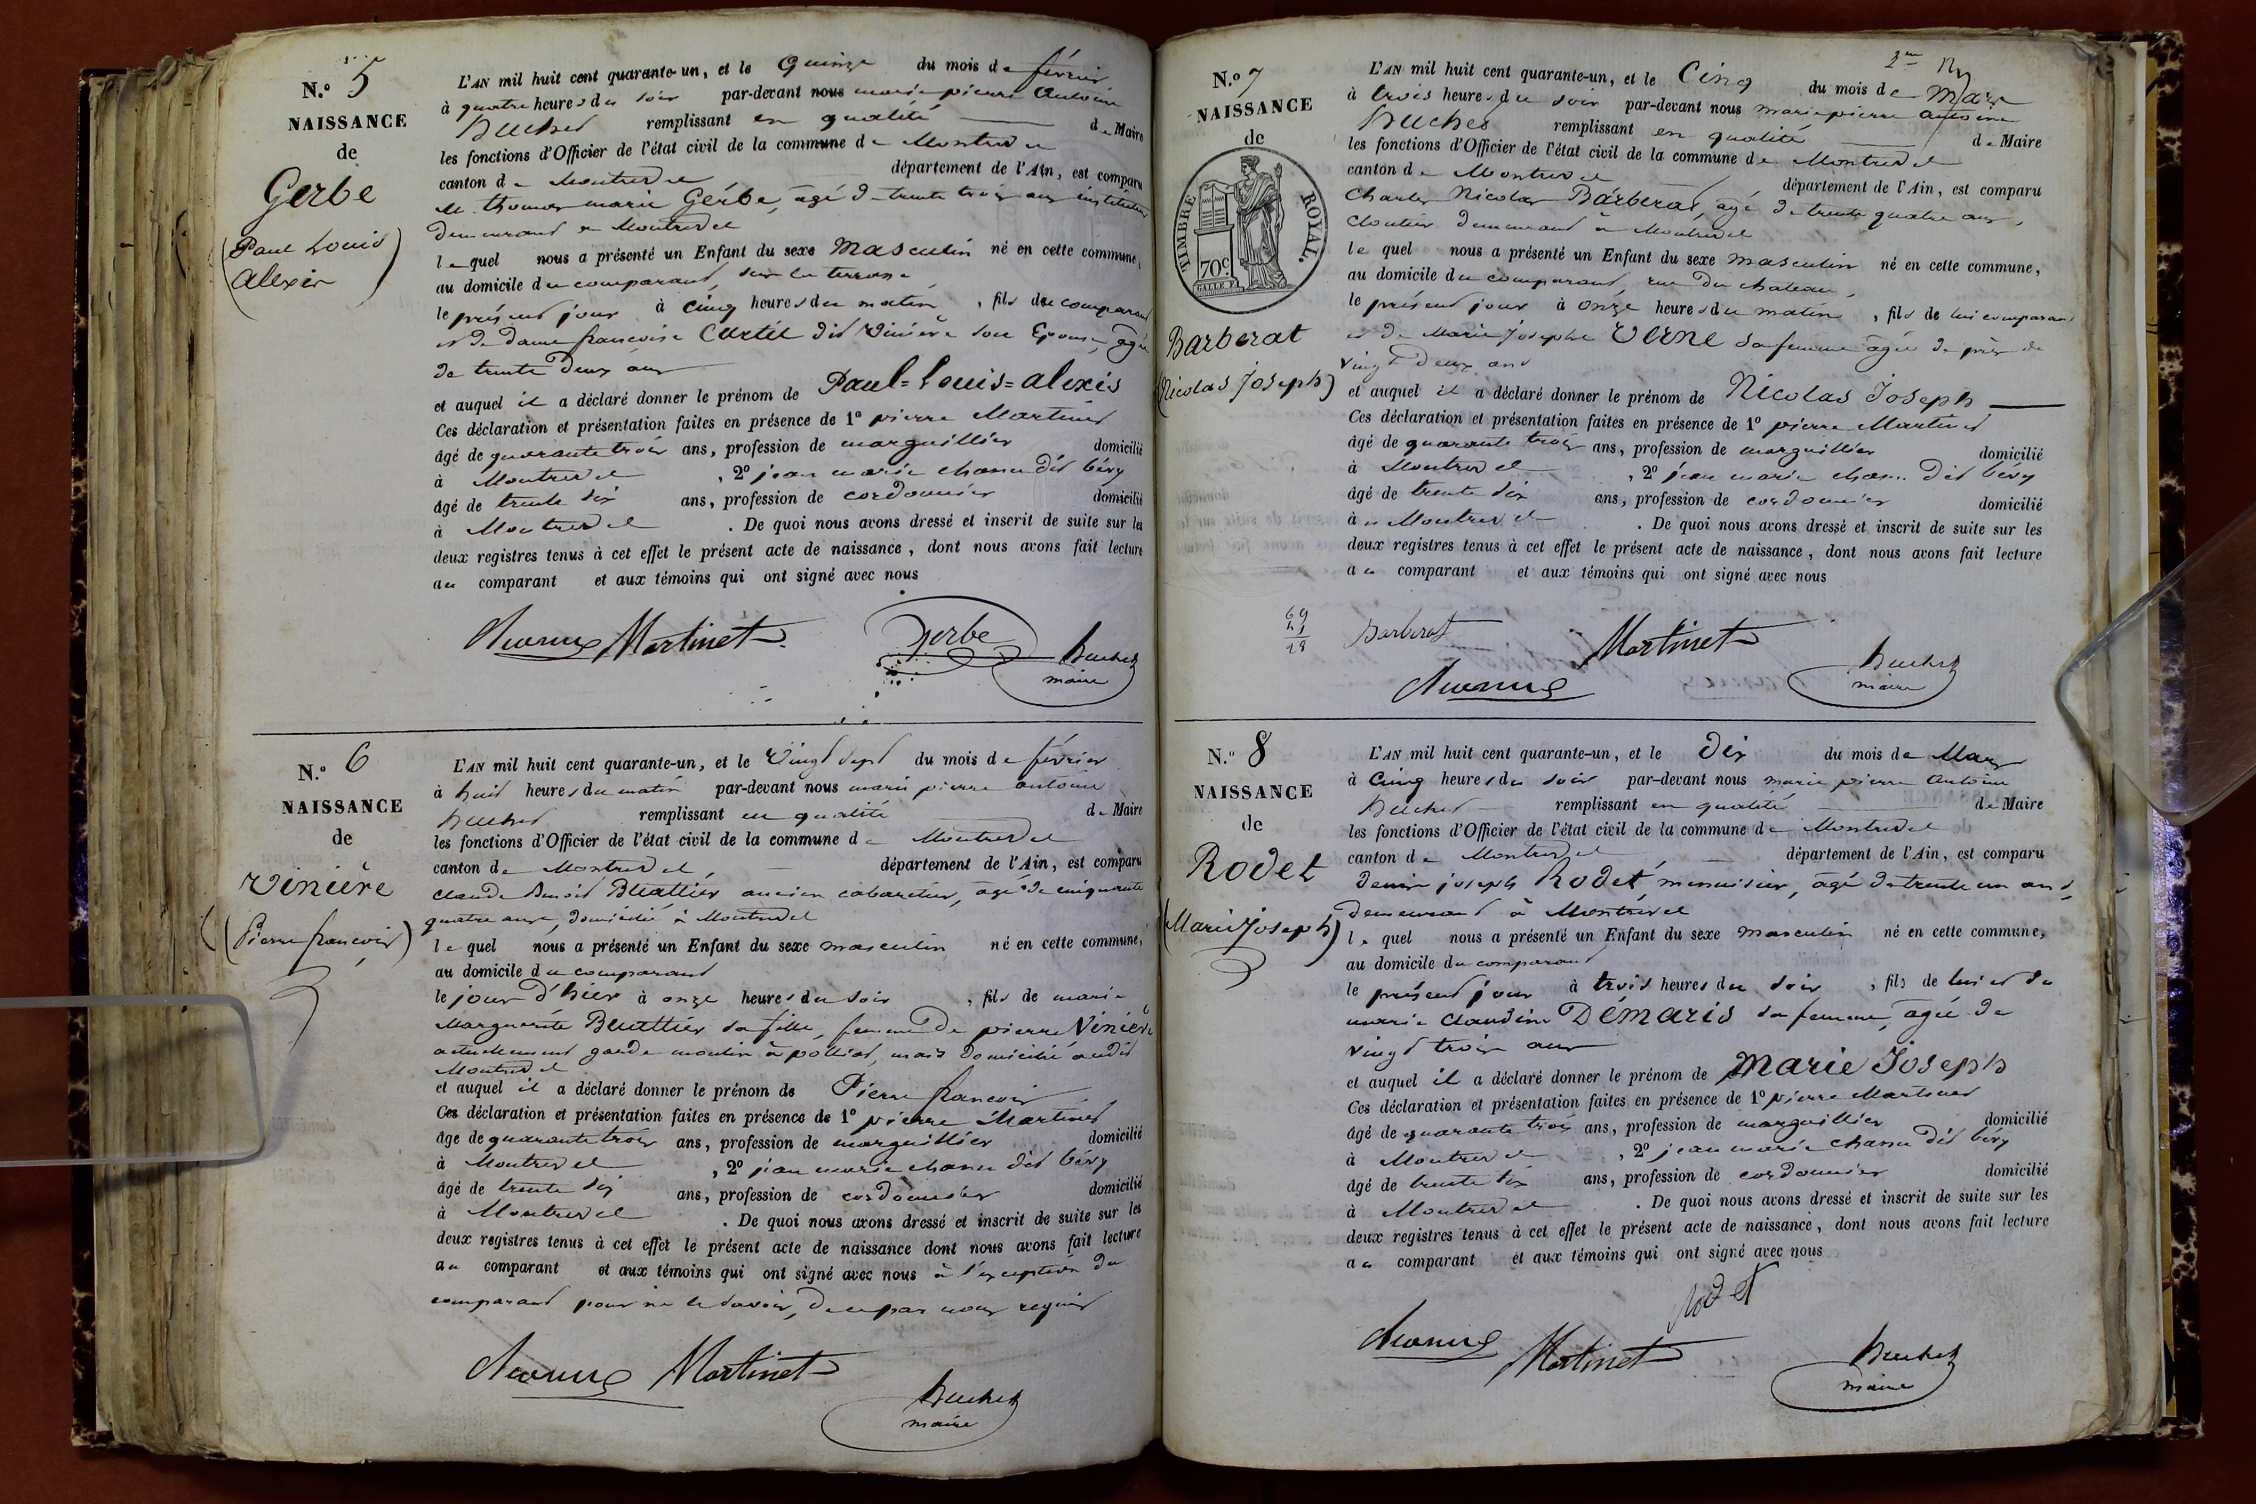 N.º 5
NAISSANCE
de
Gerbe
(Paul Louis
alexis)
L'AN mil huit cent quarante-un, et le Quinze du mois de février
à quatre heures du soir par-devant nous marie pierre antoine
Buchet remplissant en qualité de Maire
les fonctions d'Officier de l'état civil de la commune de Montrevel
canton de Montrevel département de l'Ain, est comparu
M. thomas marie Gérbe, agé de trente trois ans instituteur
demeurant à Montrevel
lequel nous a présenté un Enfant du sexe Masculin né en cette commune,
au domicile du comparant, sur la terrasse
le présent jour à cinq heures du matin, fils du comparant
et de dame françoise Curtil dit Vinière son Epouse, agée
de trente deux ans
et auquel il a déclaré donner le prénom de Paul=Louis=alexis
Ces déclaration et présentation faites en présence de 1º pierre Martinet
âgé de quarante trois ans, profession de marguillier domicilié
à Montrevel, 2º jean marie chanu dit béry
âgé de trente six ans, profession de cordonnier domicilié
à Montrevel. De quoi nous avons dressé et inscrit de suite sur les
deux registres tenus à cet effet le présent acte de naissance, dont nous avons fait lecture
au comparant et aux témoins qui ont signé avec nous
Martinet Gerbe Buchet
maire
N.º 6
NAISSANCE
de
Vinière
(Pierre françois)
L'AN mil huit cent quarante-un, et le Vingt sept du mois de février
à huit heures du matin par-devant nous marie pierre antoine
Buchet remplissant en qualité de Maire
les fonctions d'Officier de l'état civil de la commune de Montrevel
canton de Montrevel, département de l'Ain, est comparu
claude Benoit Beuttier ancien cabaretier, agé de cinquante
quatre ans, domicilié à Montrevel
lequel nous a présenté un Enfant du sexe masculin né en cette commune,
au domicile du comparant
le jour d'hier à onze heures du soir, fils de marie
Marguerite Beuttier sa fille, femme de pierre Vinière
actuellement garde moulin à polliat, mais domicilié audit
Montrevel
et auquel il a déclaré donner le prénom de Pierre françois
Ces déclaration et présentation faites en présence de 1º pierre Martinet
âge de quarante trois ans, profession de marguillier domicilié
à Montrevel, 2º jean marie chanu dit béry
âgé de trente six ans, profession de cordonnier domicilié
à Montrevel. De quoi nous avons dressé et inscrit de suite sur les
deux registres tenus à cet effet le présent acte de naissance dont nous avons fait lecture
au comparant et aux témoins qui ont signé avec nous à l'exception du
comparant pour ne le savoir, de ce par nous requis
Martinet
Buchet
maire
2me
N.º 7
NAISSANCE
de
TIMBRE ROYAL.
70c.
Barberat
(Nicolas Joseph)
L'AN mil huit cent quarante-un, et le Cinq du mois de Mars
à trois heures du soir par-devant nous marie pierre antoine
Buchet remplissant en qualité de Maire
les fonctions d'Officier de l'état civil de la commune de Montrevel
canton de Montrevel département de l'Ain, est comparu
Charles Nicolas Barberat, agé de trente quatre ans,
cloutier demeurant à Montrevel
lequel nous a présenté un Enfant du sexe masculin né en cette commune,
au domicile du comparant, rue du chateau,
le présent jour à onze heures du matin, fils de lui comparant
et de Marie Josephe Verne sa femme agée de près de
vingt deux ans
et auquel il a déclaré donner le prénom de Nicolas Joseph
Ces déclaration et présentation faites en présence de 1º pierre Martinet
âgé de quarante trois ans, profession de marguillier domicilié
à Montrevel, 2º jean marie chanu dit béry
âgé de trente six ans, profession de cordonnier domicilié
à Montrevel. De quoi nous avons dressé et inscrit de suite sur les
deux registres tenus à cet effet le présent acte de naissance, dont nous avons fait lecture
au comparant et aux témoins qui ont signé avec nous
Barberat Martinet Buchet
maire
N.º 8
NAISSANCE
de
Rodet
(Marie Joseph)
L'AN mil huit cent quarante-un, et le Dix du mois de Mars
à Cinq heures du soir par-devant nous marie pierre antoine
Buchet remplissant en qualité de Maire
les fonctions d'Officier de l'état civil de la commune de Montrevel
canton de Montrevel département de l'Ain, est comparu
denis joseph Rodet menuisier, agé de trente un ans,
demeurant à Montrevel
lequel nous a présenté un Enfant du sexe masculin né en cette commune,
au domicile du comparant
le présent jour à trois heures du soir, fils de lui et de
marie claudine Démaris sa femme, agée de
vingt trois ans
et auquel il a déclaré donner le prénom de Marie Joseph
Ces déclaration et présentation faites en présence de 1º pierre Martinet
âgé de quarante trois ans, profession de marguillier domicilié
à Montrevel, 2º jean marie chanu dit béry
âgé de trente six ans, profession de cordonnier domicilié
à Montrevel. De quoi nous avons dressé et inscrit de suite sur les
deux registres tenus à cet effet le présent acte de naissance, dont nous avons fait lecture
au comparant et aux témoins qui ont signé avec nous
Rodet
Martinet Buchet
maire